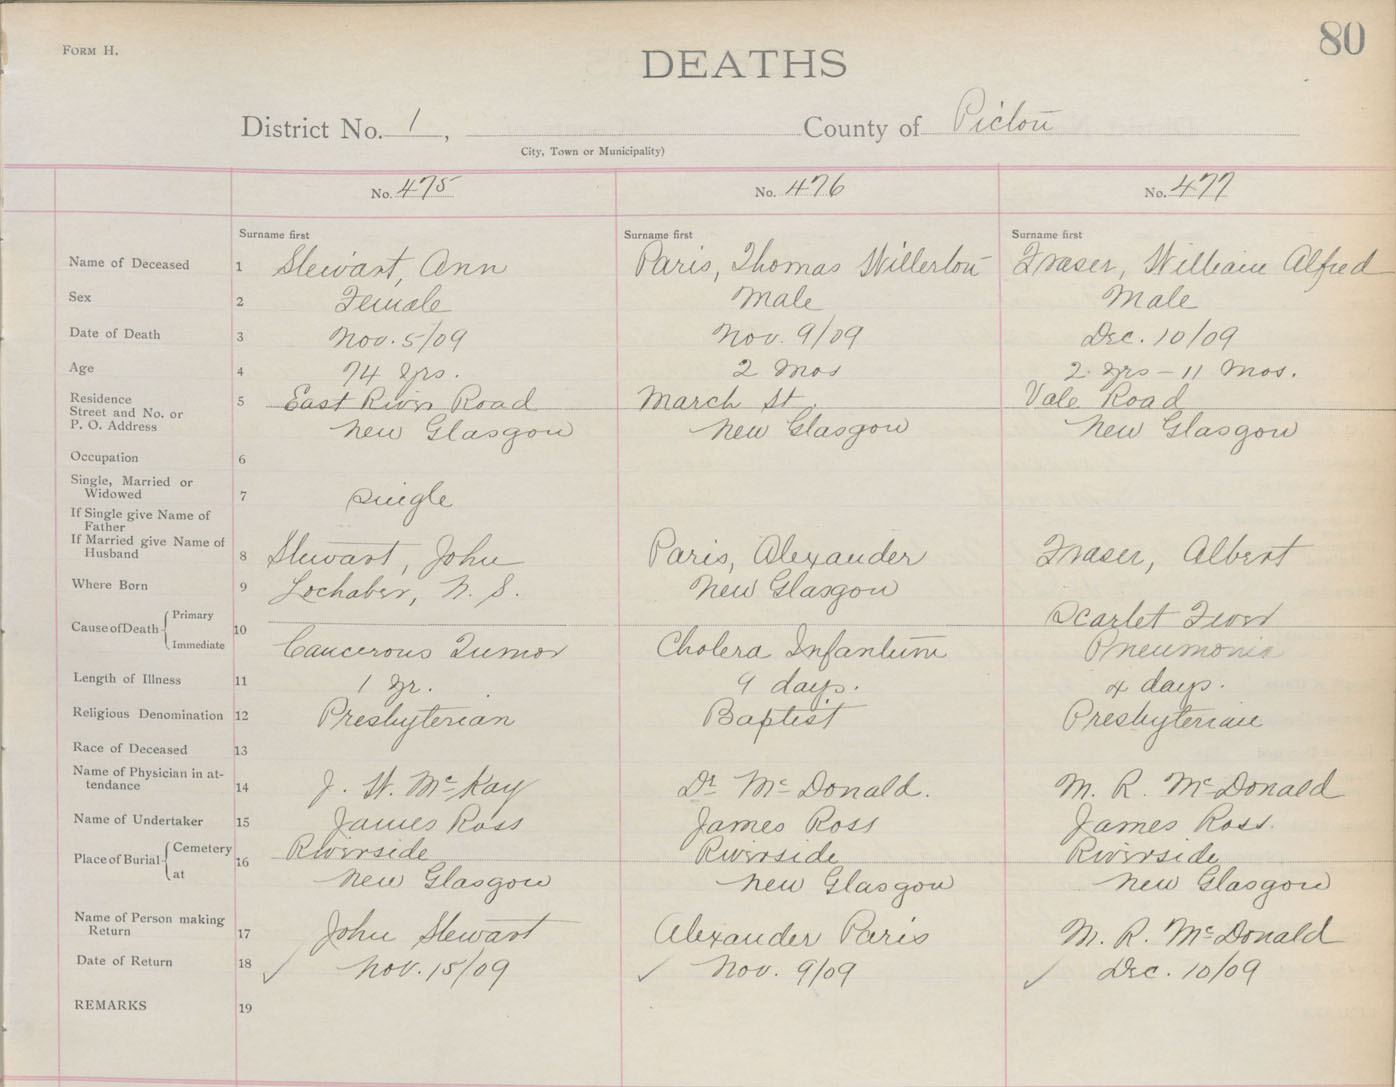 80
FORM H.
DEATHS
District No. 1, County of Pictou
City, Town or Municipality)
No. 475 No. 476 No. 477
Surname first Surname first Surname first
Name of Deceased 1 Stewart, Ann Paris, Thomas Willerton Fraser, William Alfred
Sex 2 Female Male Male
Date of Death 3 Nov. 5/09 Nov. 9/09 Dec. 10/09
Age 4 74 yrs. 2 Mos 2 yrs - 11 Mos.
Residence 5 East River Road March St. Vale Road
Street and No. or
P. O. Address New Glasgow New Glasgow New Glasgow
Occupation 6
Single, Married or
Widowed 7 Single
If Single give Name of
Father
If Married give Name of
Husband 8 Stewart, John Paris, Alexander Fraser, Albert
Where Born 9 Lochaber, N. S. New Glasgow
Cause of Death { Primary 10 Scarlet Fever
Immediate Cancerous Tumor Cholera Infantum Pneumonia
Length of Illness 11 1 yr. 9 days. 4 days.
Religious Denomination 12 Presbyterian Baptist Presbyterian
Race of Deceased 13
Name of Physician in at-
tendance 14 J. W. McKay Dr McDonald. M. R. McDonald
Name of Undertaker 15 James Ross James Ross James Ross.
Place of Burial { Cemetery 16 Riverside Riverside Riverside
at New Glasgow New Glasgow New Glasgow
Name of Person making
Return 17 John Stewart Alexander Paris M. R. McDonald
Date of Return 18 ✓ Nov. 15/09 ✓ Nov. 9/09 ✓ Dec. 10/09
REMARKS 19